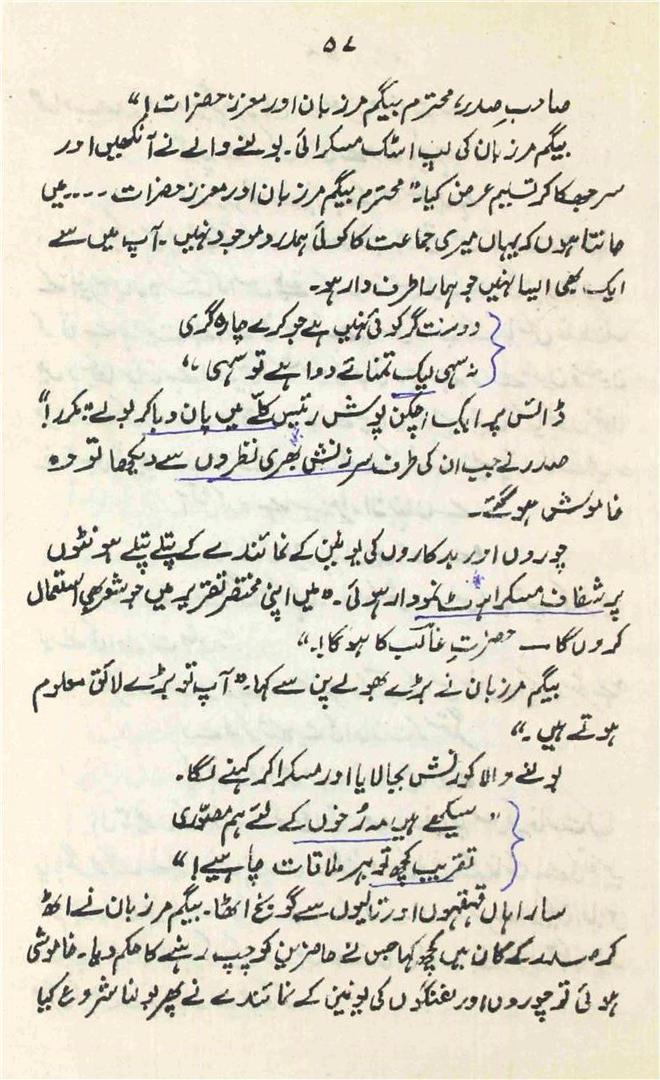 ۵۷
صاحبِ صدر، محترم بیگم مرزبان اور معزز حضرات!“
بیگم مرزبان کی لپ اسٹک مسکرائی۔ بولنے والے نے آنکھیں اور
سر جھکا کر تسلیم عرض کیا۔ ”محترم بیگم مرزبان اور معزز حضرات ۔۔۔۔ میں
جانتا ہوں کہ یہاں میری جماعت کا کوئی ہمدرد موجود نہیں۔ آپ میں سے
ایک بھی ایسا نہیں جو ہمارا طرف دار ہو۔
دوست گر کوئی نہیں ہے جو کرے چارہ گری
نہ سہی لیک تمنائے دوا ہے تو سہی۔“
ڈائس پر ایک اچکن پوش رئیس کلّے میں پان دبا کر بولے: مکرر!“
صدر نے جب ان کی طرف سرزنشی بھری نظروں سے دیکھا تو وہ
خاموش ہو گئے۔
چوروں اور بدکاروں کی یونین کے نمائندے کے پتلے پتلے ہونٹوں
پر شفاف مسکراہٹ نمودار ہوئی۔ ”میں اپنی مختصر تقریر میں جو شعر بھی استعمال
کروں گا — حضرتِ غالب کا ہو گا!۔“
بیگم مرزبان نے بڑے بھولے پن سے کہا۔ ”آپ تو بڑے لائق معلوم
ہوتے ہیں۔“
بولنے والا کورنش بجا لایا اور مسکرا کر کہنے لگا۔
”سیکھے ہیں مہ رُخوں کے لئے ہم مصوّری
تقریب کچھ تو بہر ملاقات چاہیے!“
سارا ہال قہقہوں اور تالیوں سے گونج اٹھا۔ بیگم مرزبان نے اٹھ
کر صدر کے کان میں کچھ کہا جس نے حاضرین کو چپ رہنے کا حکم دیا۔ خاموشی
ہوئی تو چوروں اور لفنگوں کی یونین کے نمائندے نے پھر بولنا شروع کیا